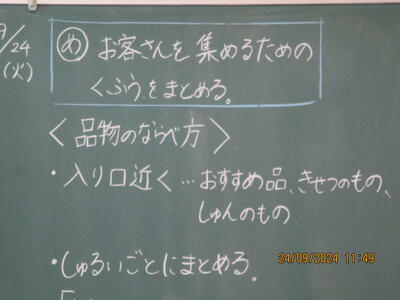 9/24
(火)
め お客さんを集めるための
くふうをまとめる。
〈品物のならべ方〉
・入り口近く…おすすめ品、きせつのもの、
しゅんのもの
・しゅるいごとにまとめる。
24/09/2024 11:49